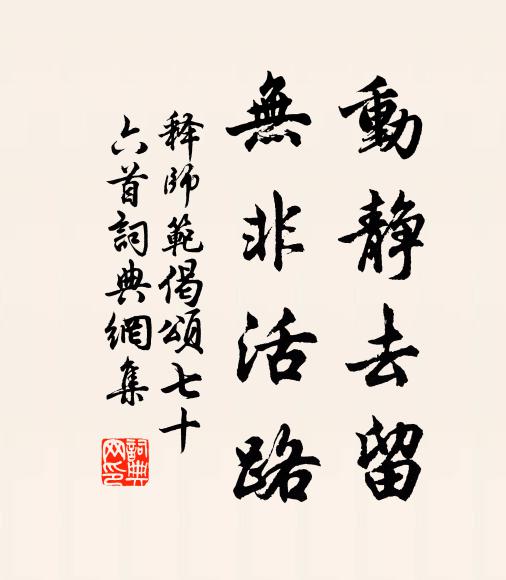 動靜去留
無非活路
释師範偈頌七十
六首詞典網集
詞典
网印